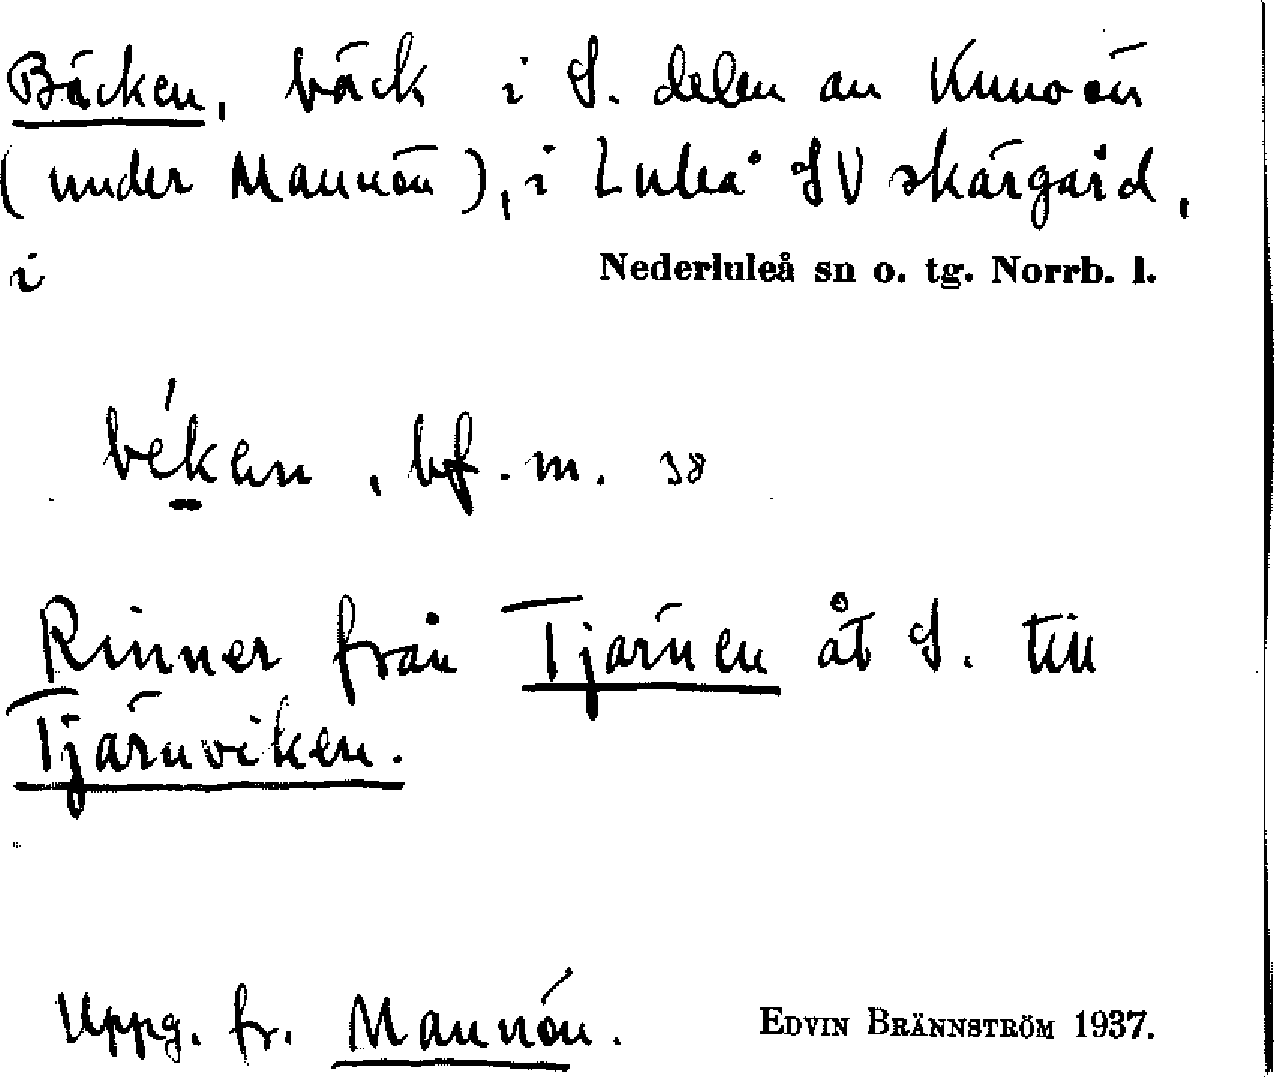 Bäcken, bäck i S. delen av Kunoön
(under Mannön), i Luleå SV skärgård,
i Nederluleå sn o. tg. Norrb. l.
béken, bf. m. 38
Rinner från Tjärnen åt S. till
Tjärnviken.
Uppg. fr. Mannön. EDVIN BRÄNNSTRÖM 1937.